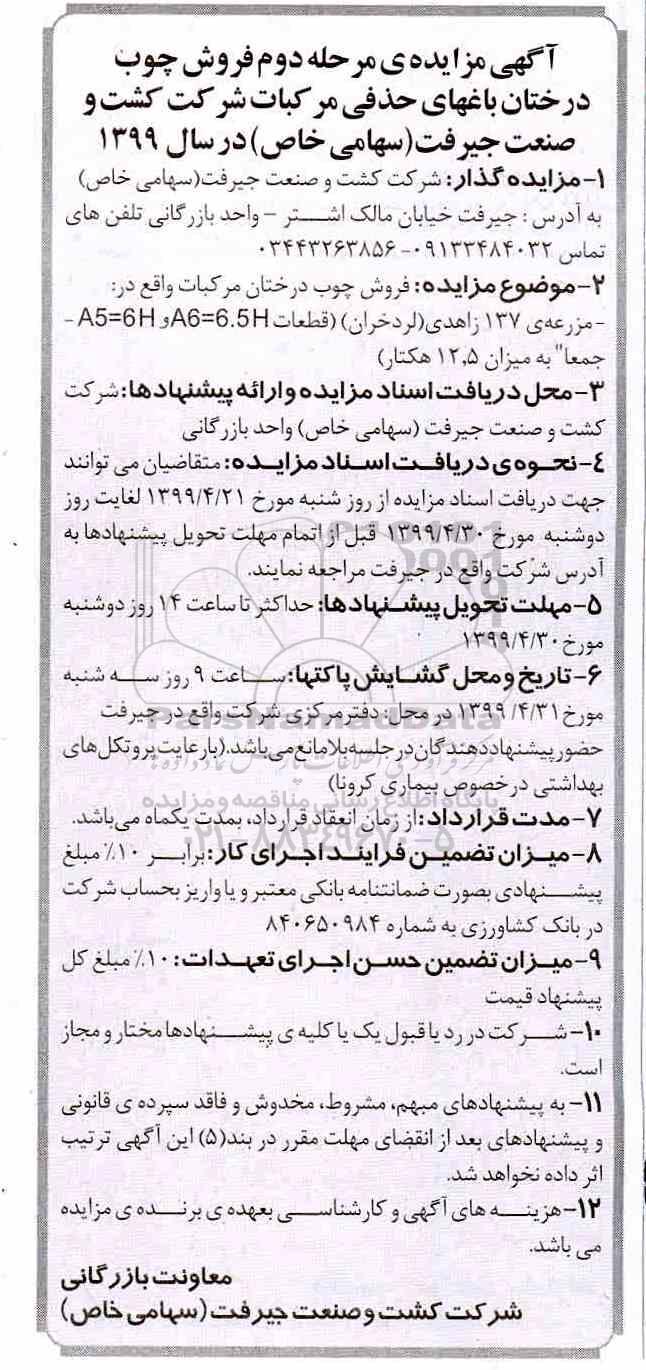 آگهی مزایده ی مرحله دوم فروش چوب
درختان باغهای حذفی مرکبات شرکت کشت و
صنعت جیرفت(سهامی خاص)در سال ۱۳۹۹
۱-مزایده گذار: شرکت کشت و صنعت جیرفت(سهامی خاص)
به آدرس : جیرفت خیابان مالک اشتر - واحد بازرگانی تلفن های
تماس ۰۹۱۳۳۴۸۴۰۳۲-۰۳۴۴۳۲۶۳۸۵۶
۲-موضوع مزایده: فروش چوب درختان مرکبات واقع در:
-مزرعه‌ی ۱۳۷ زاهدی(لردخران) (قطعات A6=6.5H و A5=6H -
جمعا" به میزان ۱۲,۵ هکتار)
۳-محل دریافت اسناد مزایده و ارائه پیشنهادها: شرکت
کشت و صنعت جیرفت (سهامی خاص) واحد بازرگانی
۴-نحوه‌ی دریافت اسناد مزایده: متقاضیان می توانند
جهت دریافت اسناد مزایده از روز شنبه مورخ ۱۳۹۹/۴/۲۱ لغایت روز
دوشنبه مورخ ۱۳۹۹/۴/۳۰ قبل از اتمام مهلت تحویل پیشنهادها به
آدرس شرکت واقع در جیرفت مراجعه نمایند.
۵-مهلت تحویل پیشنهادها: حداکثر تا ساعت ۱۴ روز دوشنبه
مورخ ۱۳۹۹/۴/۳۰
۶-تاریخ و محل گشایش پاکتها: ساعت ۹ روز سه شنبه
مورخ ۱۳۹۹/۴/۳۱ در محل: دفتر مرکزی شرکت واقع در جیرفت
ParsNamadData
حضور پیشنهاددهندگان در جلسه بلامانع می باشد.(بارعایت پروتکل‌های
بهداشتی درخصوص بیماری کرونا)
پایگاه اطلاع رسانی مناقصه و مزایده
۷-مدت قرارداد: از زمان انعقاد قرارداد، بمدت یکماه می‌باشد.
۰۲۱-۸۸۳۴۹۶۷۰-۵
۸-میزان تضمین فرایند اجرای کار: برابر ۱۰٪ مبلغ
پیشنهادی بصورت ضمانتنامه بانکی معتبر و یا واریز بحساب شرکت
در بانک کشاورزی به شماره ۸۴۰۶۵۰۹۸۴
۹-میزان تضمین حسن اجرای تعهدات: ۱۰٪ مبلغ کل
پیشنهاد قیمت
۱۰- شرکت در رد یا قبول یک یا کلیه ی پیشنهادها مختار و مجاز
است.
۱۱- به پیشنهادهای مبهم، مشروط، مخدوش و فاقد سپرده ی قانونی
و پیشنهادهای بعد از انقضای مهلت مقرر در بند(۵) این آگهی ترتیب
اثر داده نخواهد شد.
۱۲-هزینه های آگهی و کارشناسی بعهده ی برنده ی مزایده
می باشد.
معاونت بازرگانی
شرکت کشت و صنعت جیرفت (سهامی خاص)